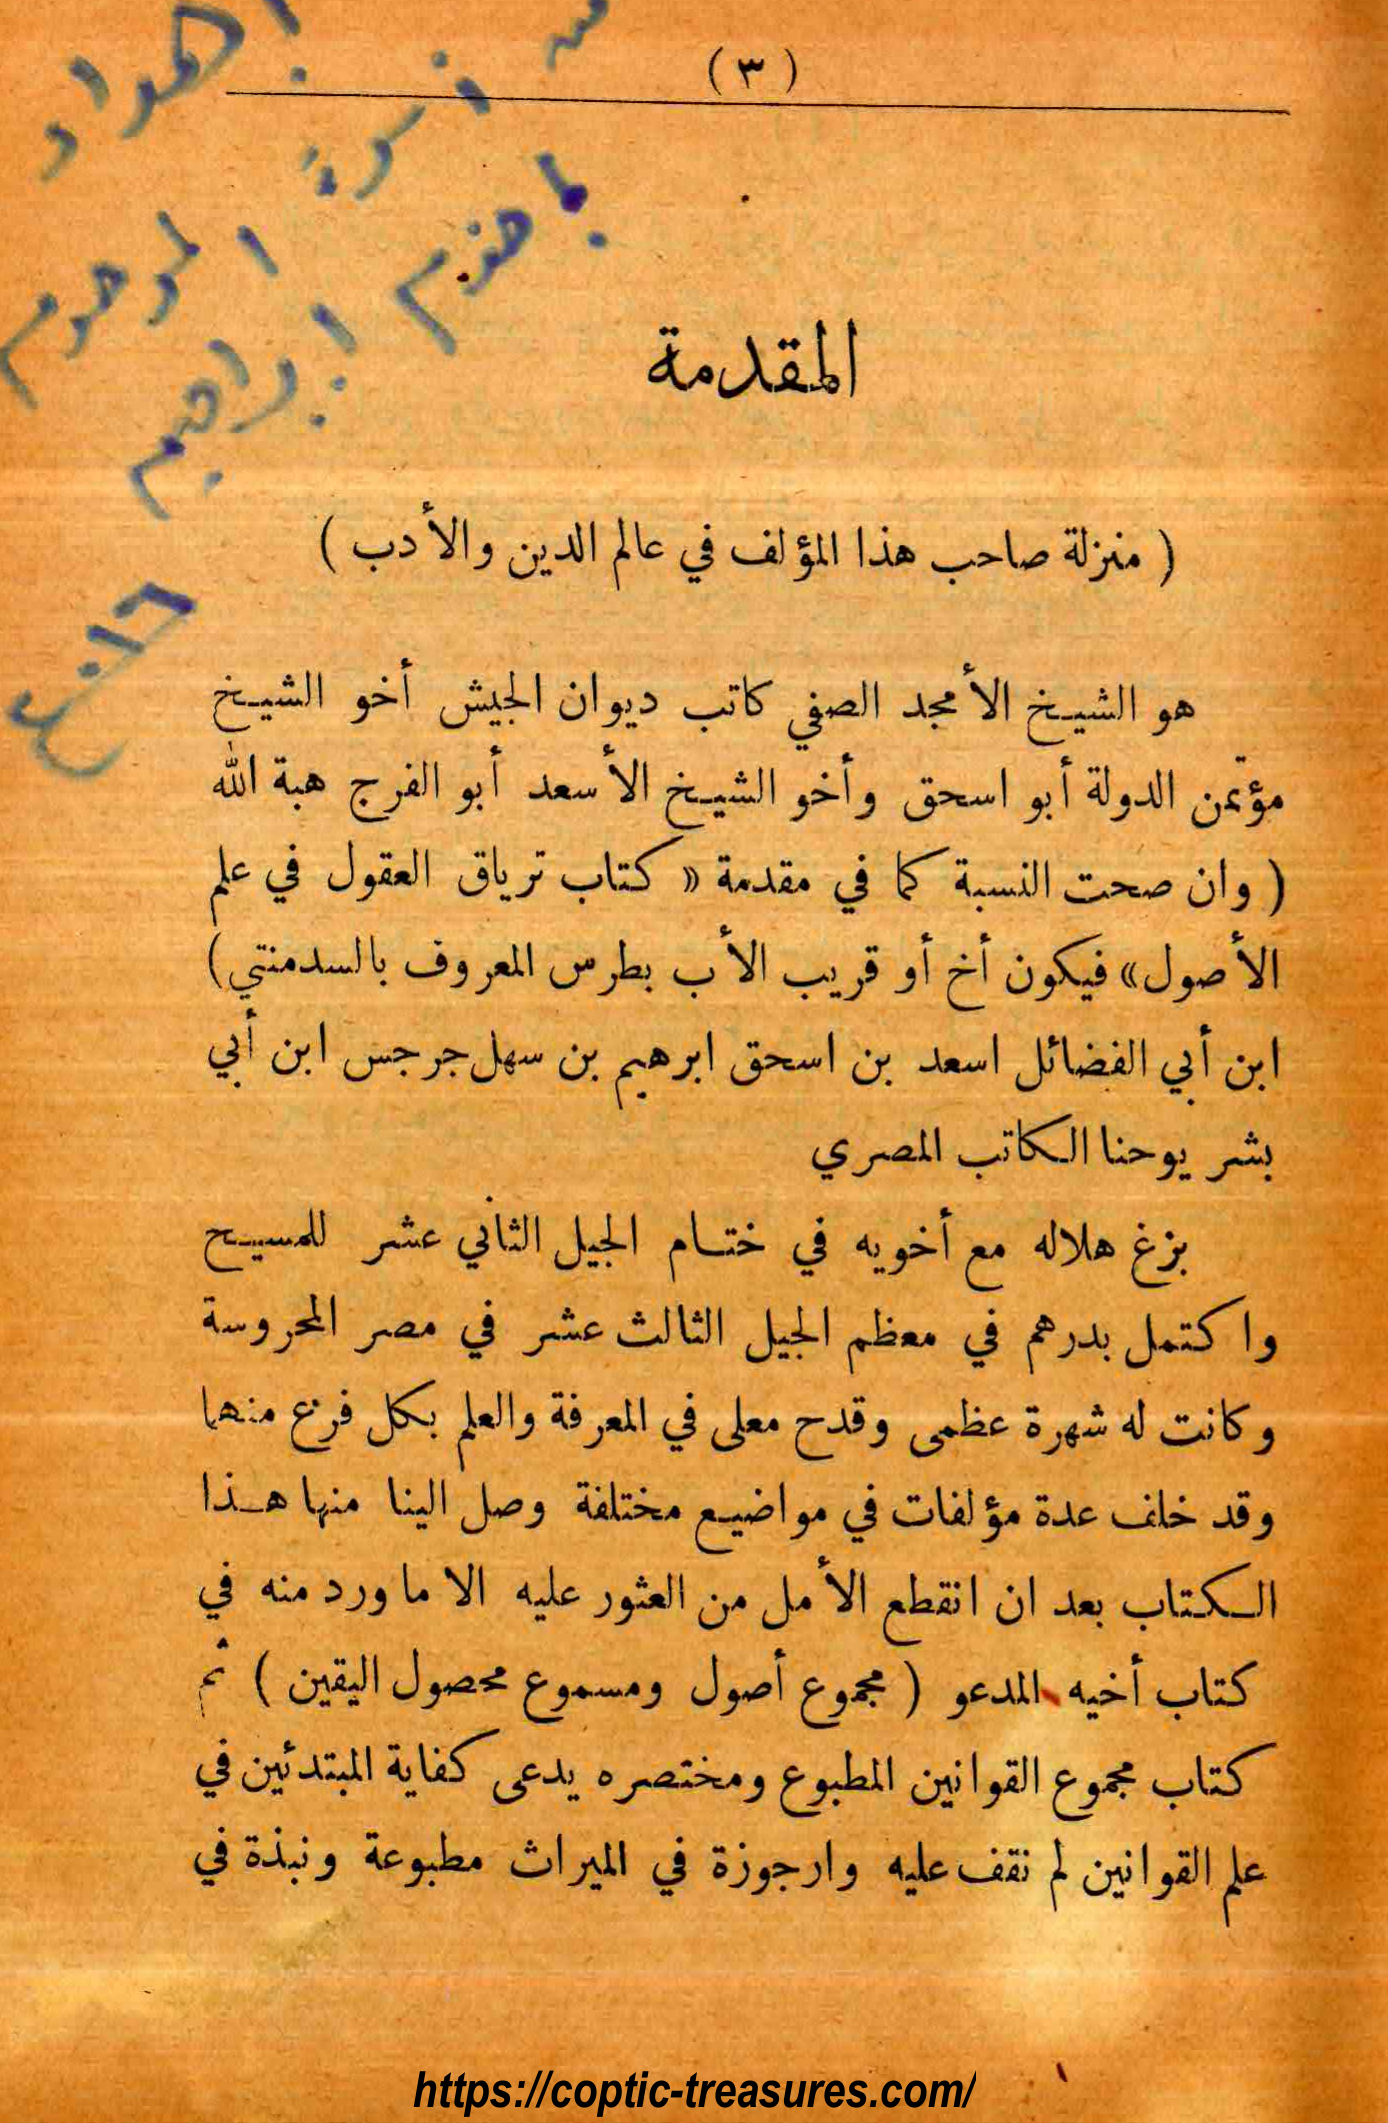 ( ٣ )
اهداء
من أسرة المرحوم
باخوم ابراهيم
المقدمة
( منزلة صاحب هذا المؤلف في عالم الدين والأدب )
هو الشيخ الأمجد الصفي كاتب ديوان الجيش أخو الشيخ
مؤتمن الدولة أبو اسحق وأخو الشيخ الأسعد أبو الفرج هبة الله
( وان صحت النسبة كما في مقدمة « كتاب ترياق العقول في علم
الأصول » فيكون أخ أو قريب الأب بطرس المعروف بالسدمنتي )
ابن أبي الفضائل اسعد بن اسحق ابرهيم بن سهل جرجس ابن أبي
بشر يوحنا الكاتب المصري
بزغ هلاله مع أخويه في ختام الجيل الثاني عشر للمسيح
واكتمل بدرهم في معظم الجيل الثالث عشر في مصر المحروسة
وكانت له شهرة عظمى وقدح معلى في المعرفة والعلم بكل فرع منهما
وقد خلف عدة مؤلفات في مواضيع مختلفة وصل الينا منها هذا
الكتاب بعد ان انقطع الأمل من العثور عليه الا ما ورد منه في
كتاب أخيه المدعو ( مجموع أصول ومسموع محصول اليقين ) ثم
كتاب مجموع القوانين المطبوع ومختصره يدعى كفاية المبتدئين في
علم القوانين لم نقف عليه وارجوزة في الميراث مطبوعة ونبذة في
https://coptic-treasures.com/